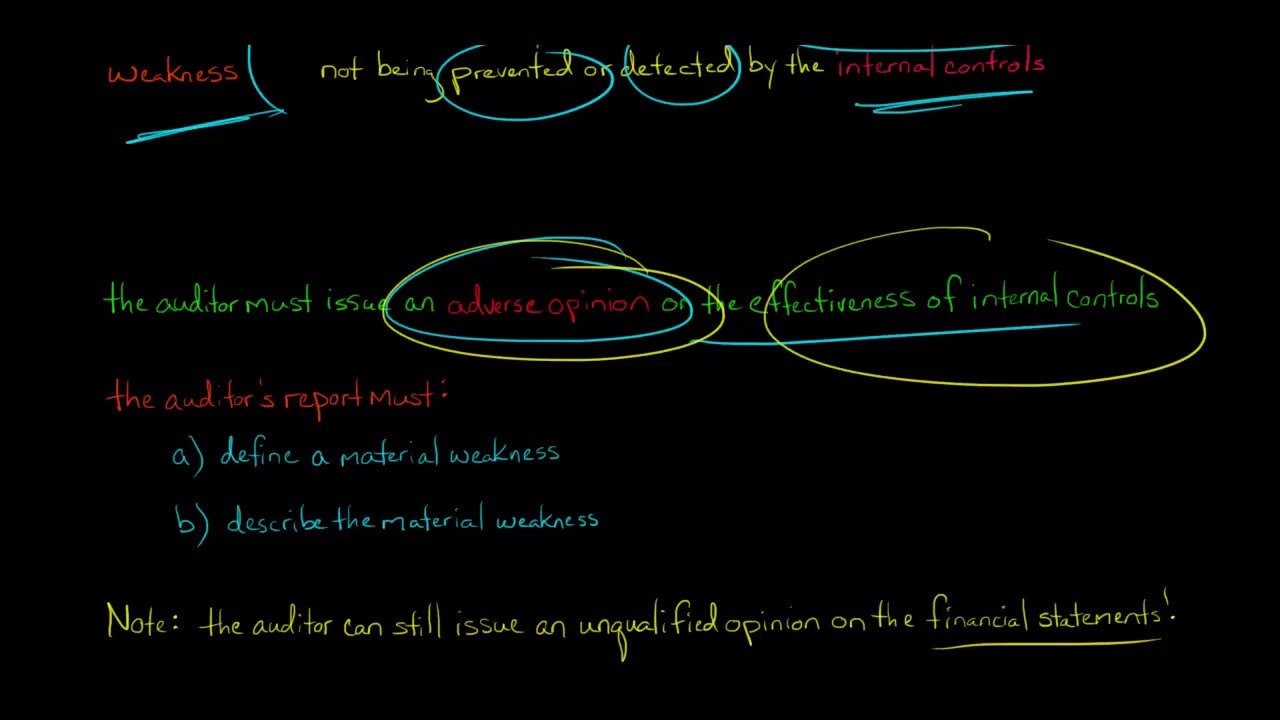 weakness not being prevented or detected by the internal controls
the auditor must issue an adverse opinion on the effectiveness of internal controls
the auditor's report must:
a) define a material weakness
b) describe the material weakness
Note: the auditor can still issue an unqualified opinion on the financial statements!